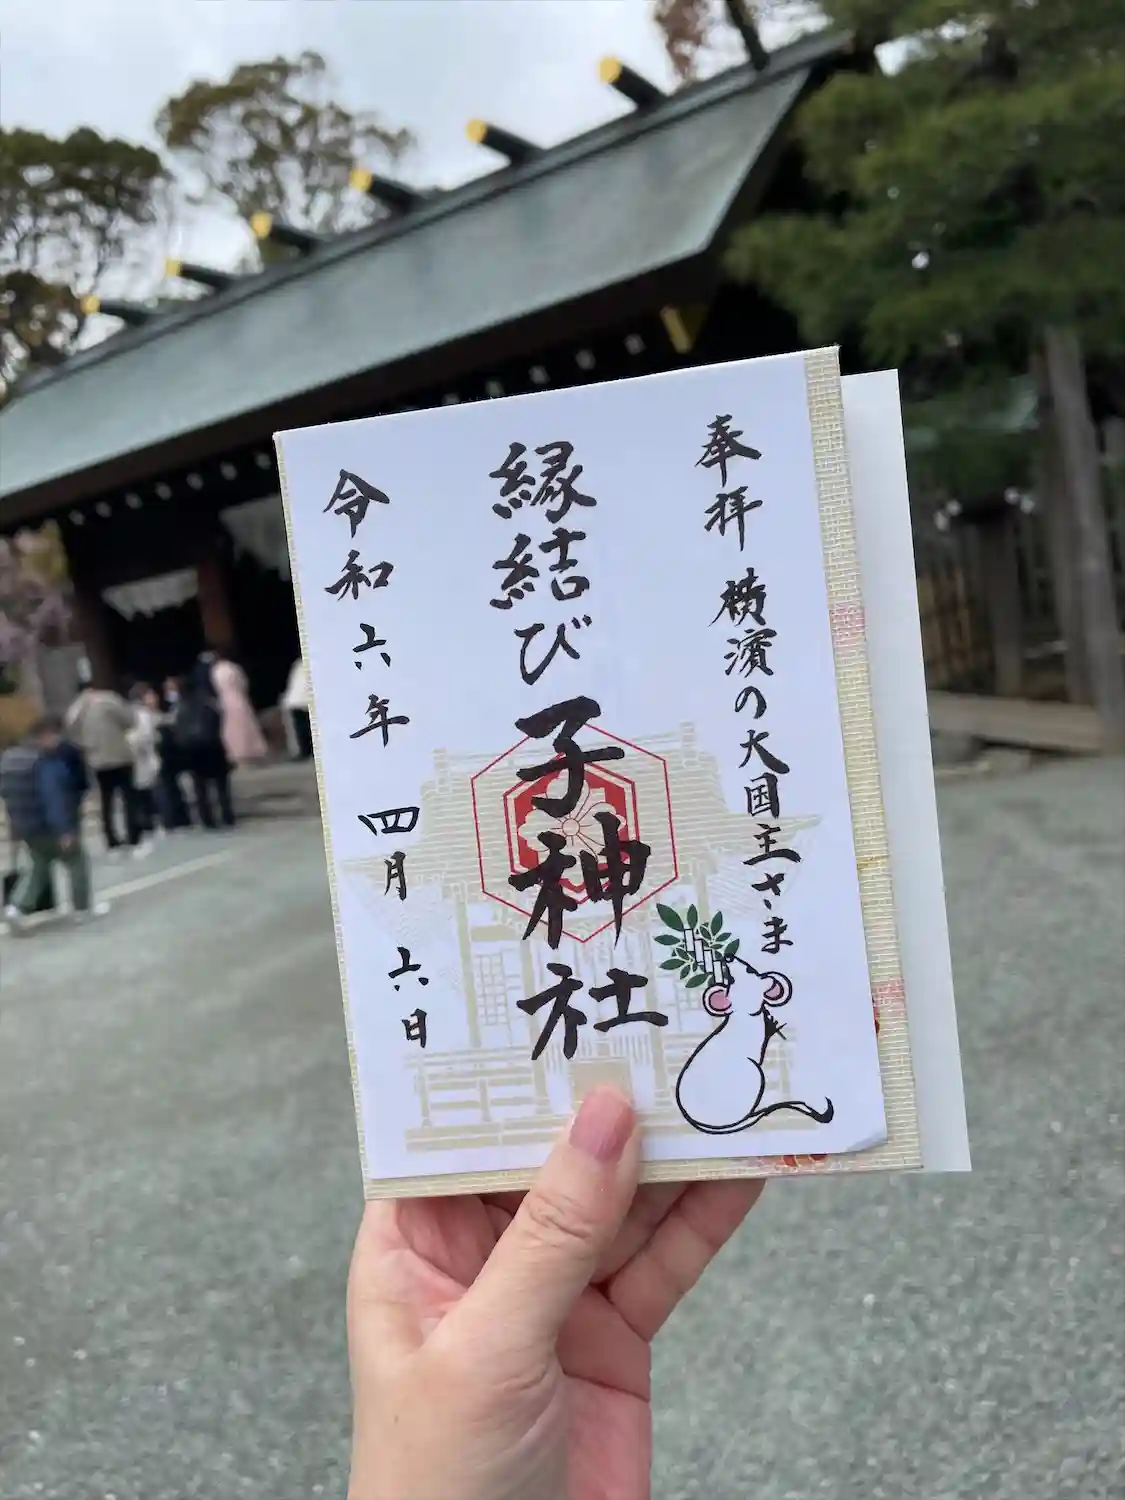 奉拝 横濱の大国主さま
縁結び 子神社
令和六年 四月 六日